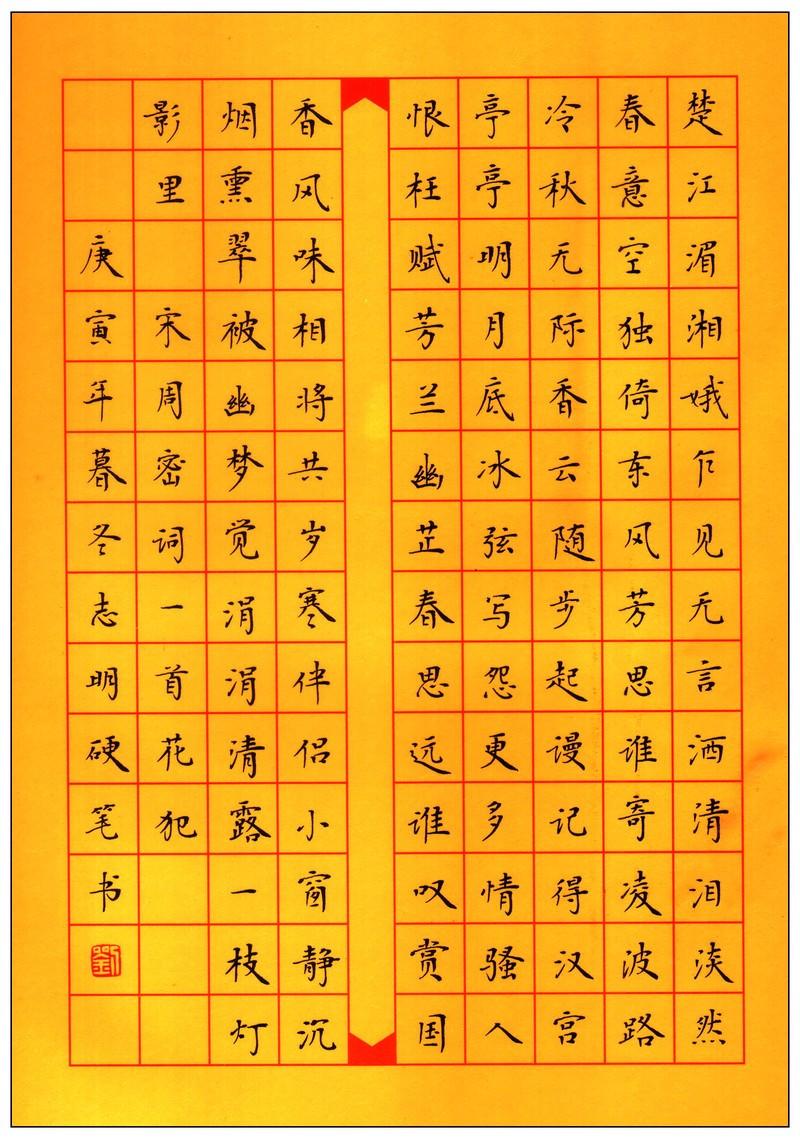 楚江湄湘娥乍见无言洒清泪淡然
春意空独倚东风芳思谁寄凌波路
冷秋无际香云随步起谩记得汉宫
亭亭明月底冰弦写怨更多情骚人
恨枉赋芳兰幽芷春思远谁叹赏国
香风味相将共岁寒伴侣小窗静沉
烟熏翠被幽梦觉涓涓清露一枝灯
影里 宋周密词一首花犯
庚寅年暮冬志明硬笔书
劉